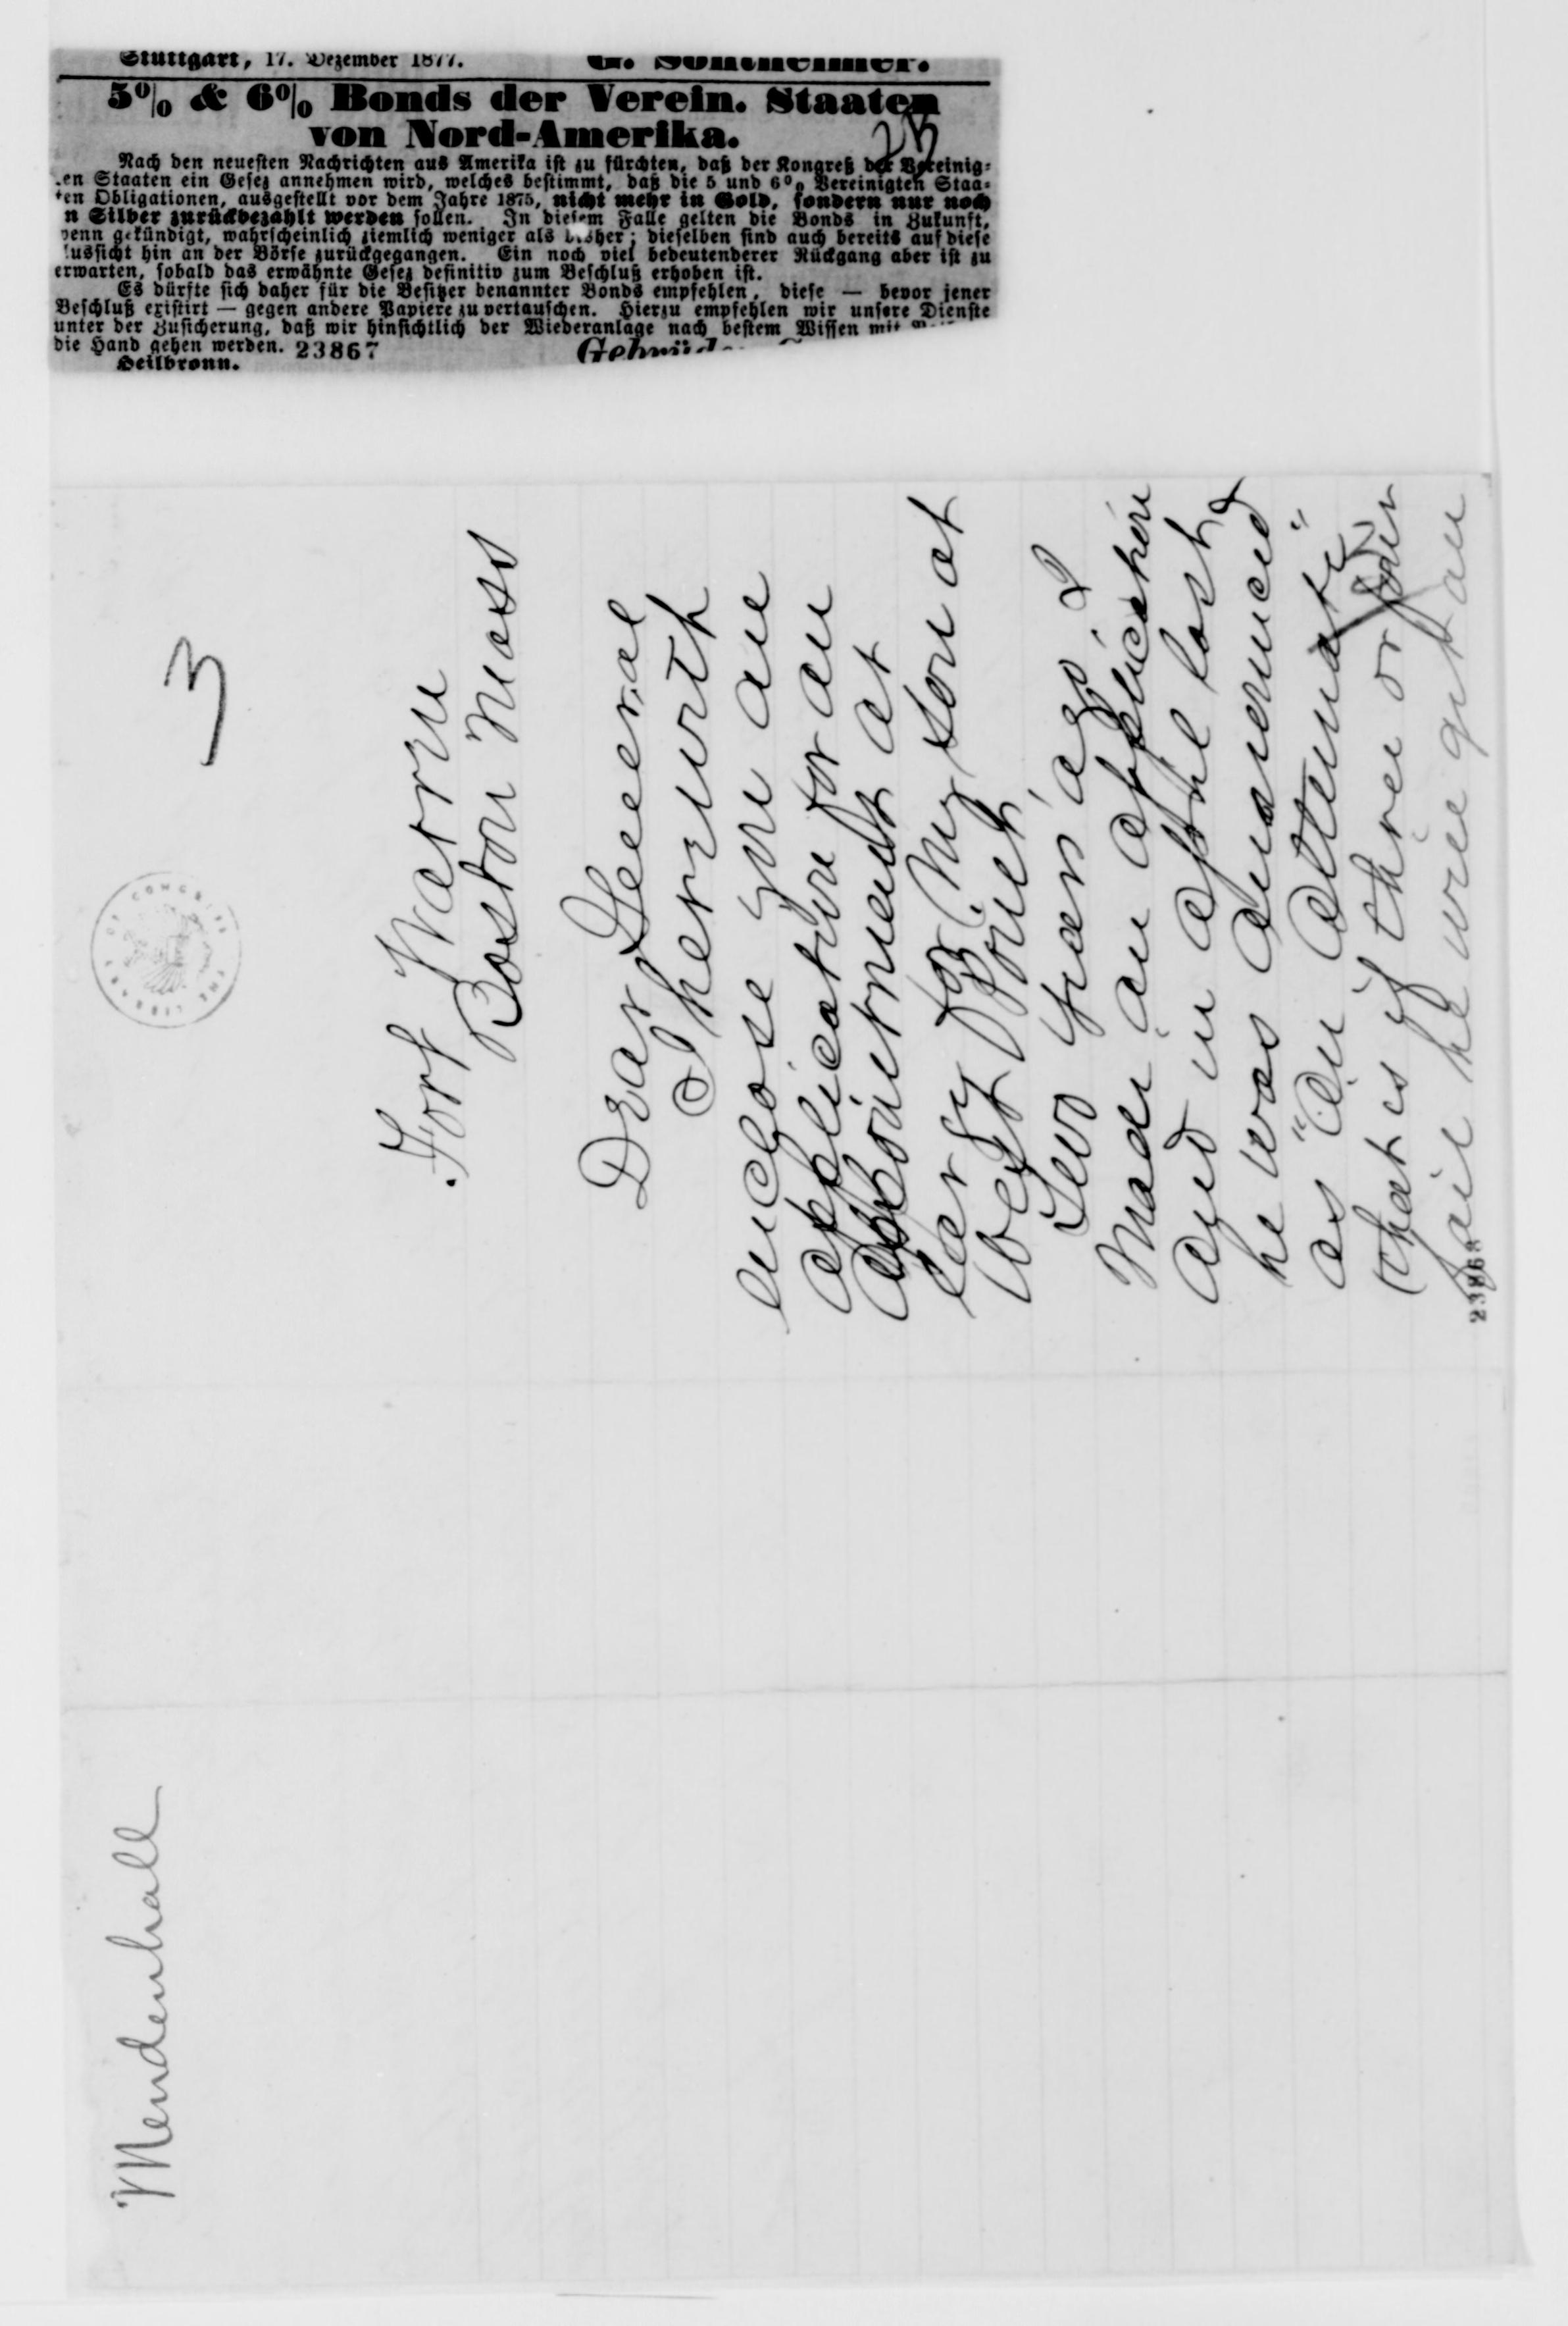 Stuttgart, 17. Dezember 1877. G. Sontheimer.
5% & 6% Bonds der Verein. Staaten
von Nord-Amerika.
23
Nach den neuesten Nachrichten aus Amerika ist zu fürchten, daß der Kongreß der Vereinig-
ten Staaten ein Gesez annehmen wird, welches bestimmt, daß die 5 und 6% Vereinigten Staa-
ten Obligationen, ausgestellt vor dem Jahre 1875, nicht mehr in Gold, sondern nur noch
n Silber zurückbezahlt werden sollen. In diesem Falle gelten die Bonds in Zukunft,
wenn gekündigt, wahrscheinlich ziemlich weniger als bisher; dieselben sind auch bereits auf diese
Aussicht hin an der Börse zurückgegangen. Ein noch viel bedeutenderer Rückgang aber ist zu
erwarten, sobald das erwähnte Gesez definitiv zum Beschluß erhoben ist.
Es dürfte sich daher für die Besitzer benannter Bonds empfehlen, diese — bevor jener
Beschluß existirt — gegen andere Papiere zu vertauschen. Hierzu empfehlen wir unsere Dienste
unter der Zusicherung, daß wir hinsichtlich der Wiederanlage nach bestem Wissen mit
die Hand gehen werden. 23867
Heilbronn. Gebrüder
3
THE LIBRARY OF CONGRESS
Fort Warren
Boston Mass
Dear General
I herewith
enclose you an
application for an
appointment at
large for my son at
West Point.
Two years ago I
made an application
and in April last
he was announced
as "an alternate"
(that is if three or four
fail he will get an
23868
Mendenhall